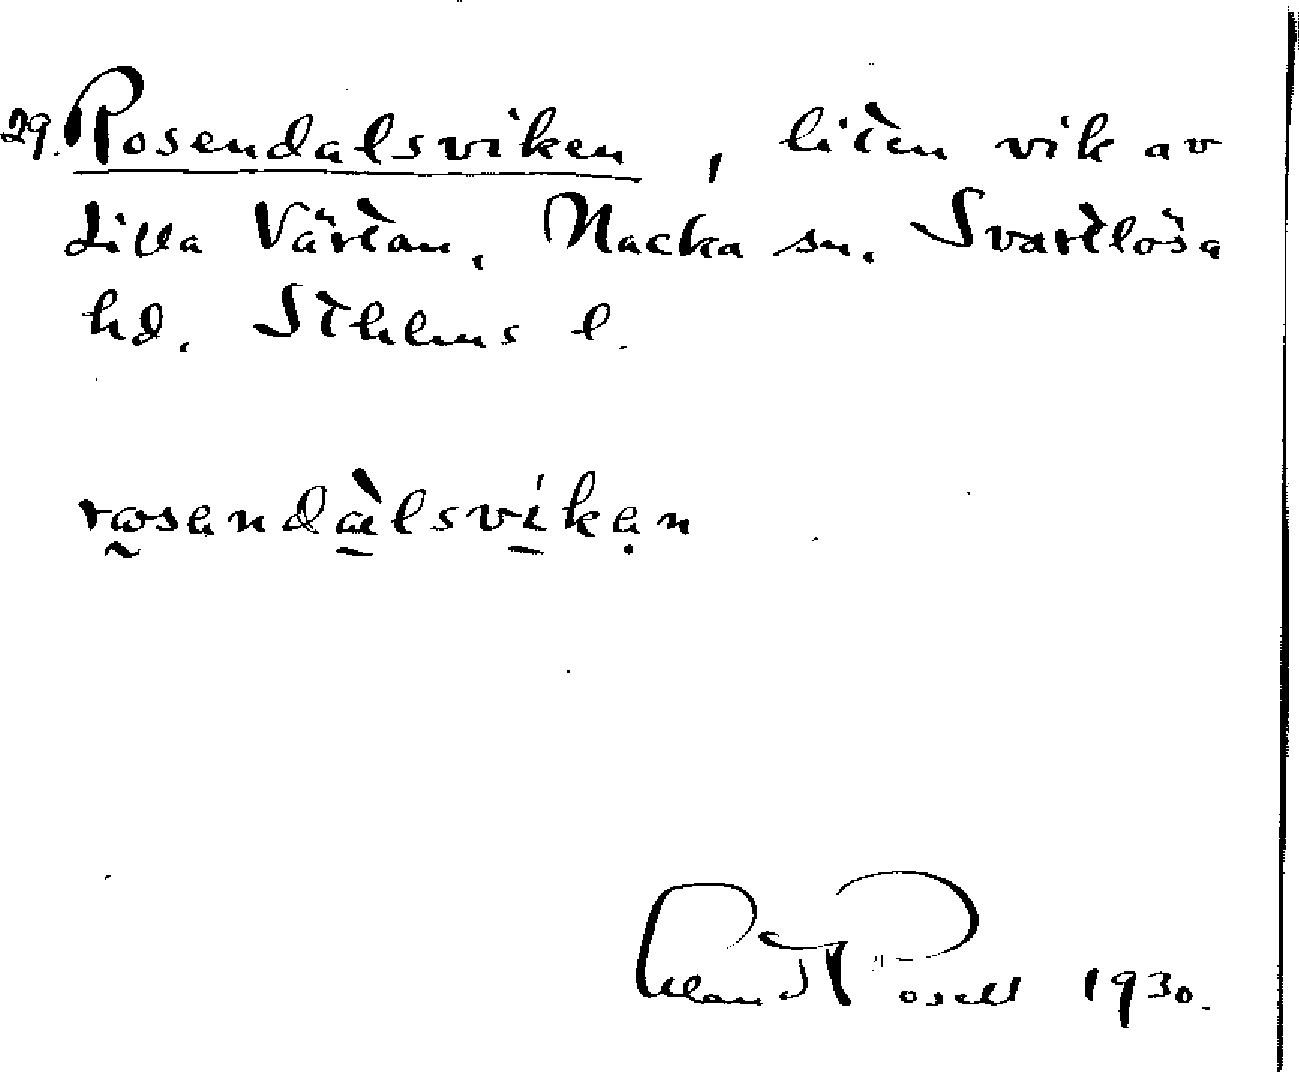 29. Rosendalsviken, liten vik av
Lilla Värtan, Nacka sn. Svartlösa
hd. Sthlms l.
rosendàlsvikan
Rosell 1930.